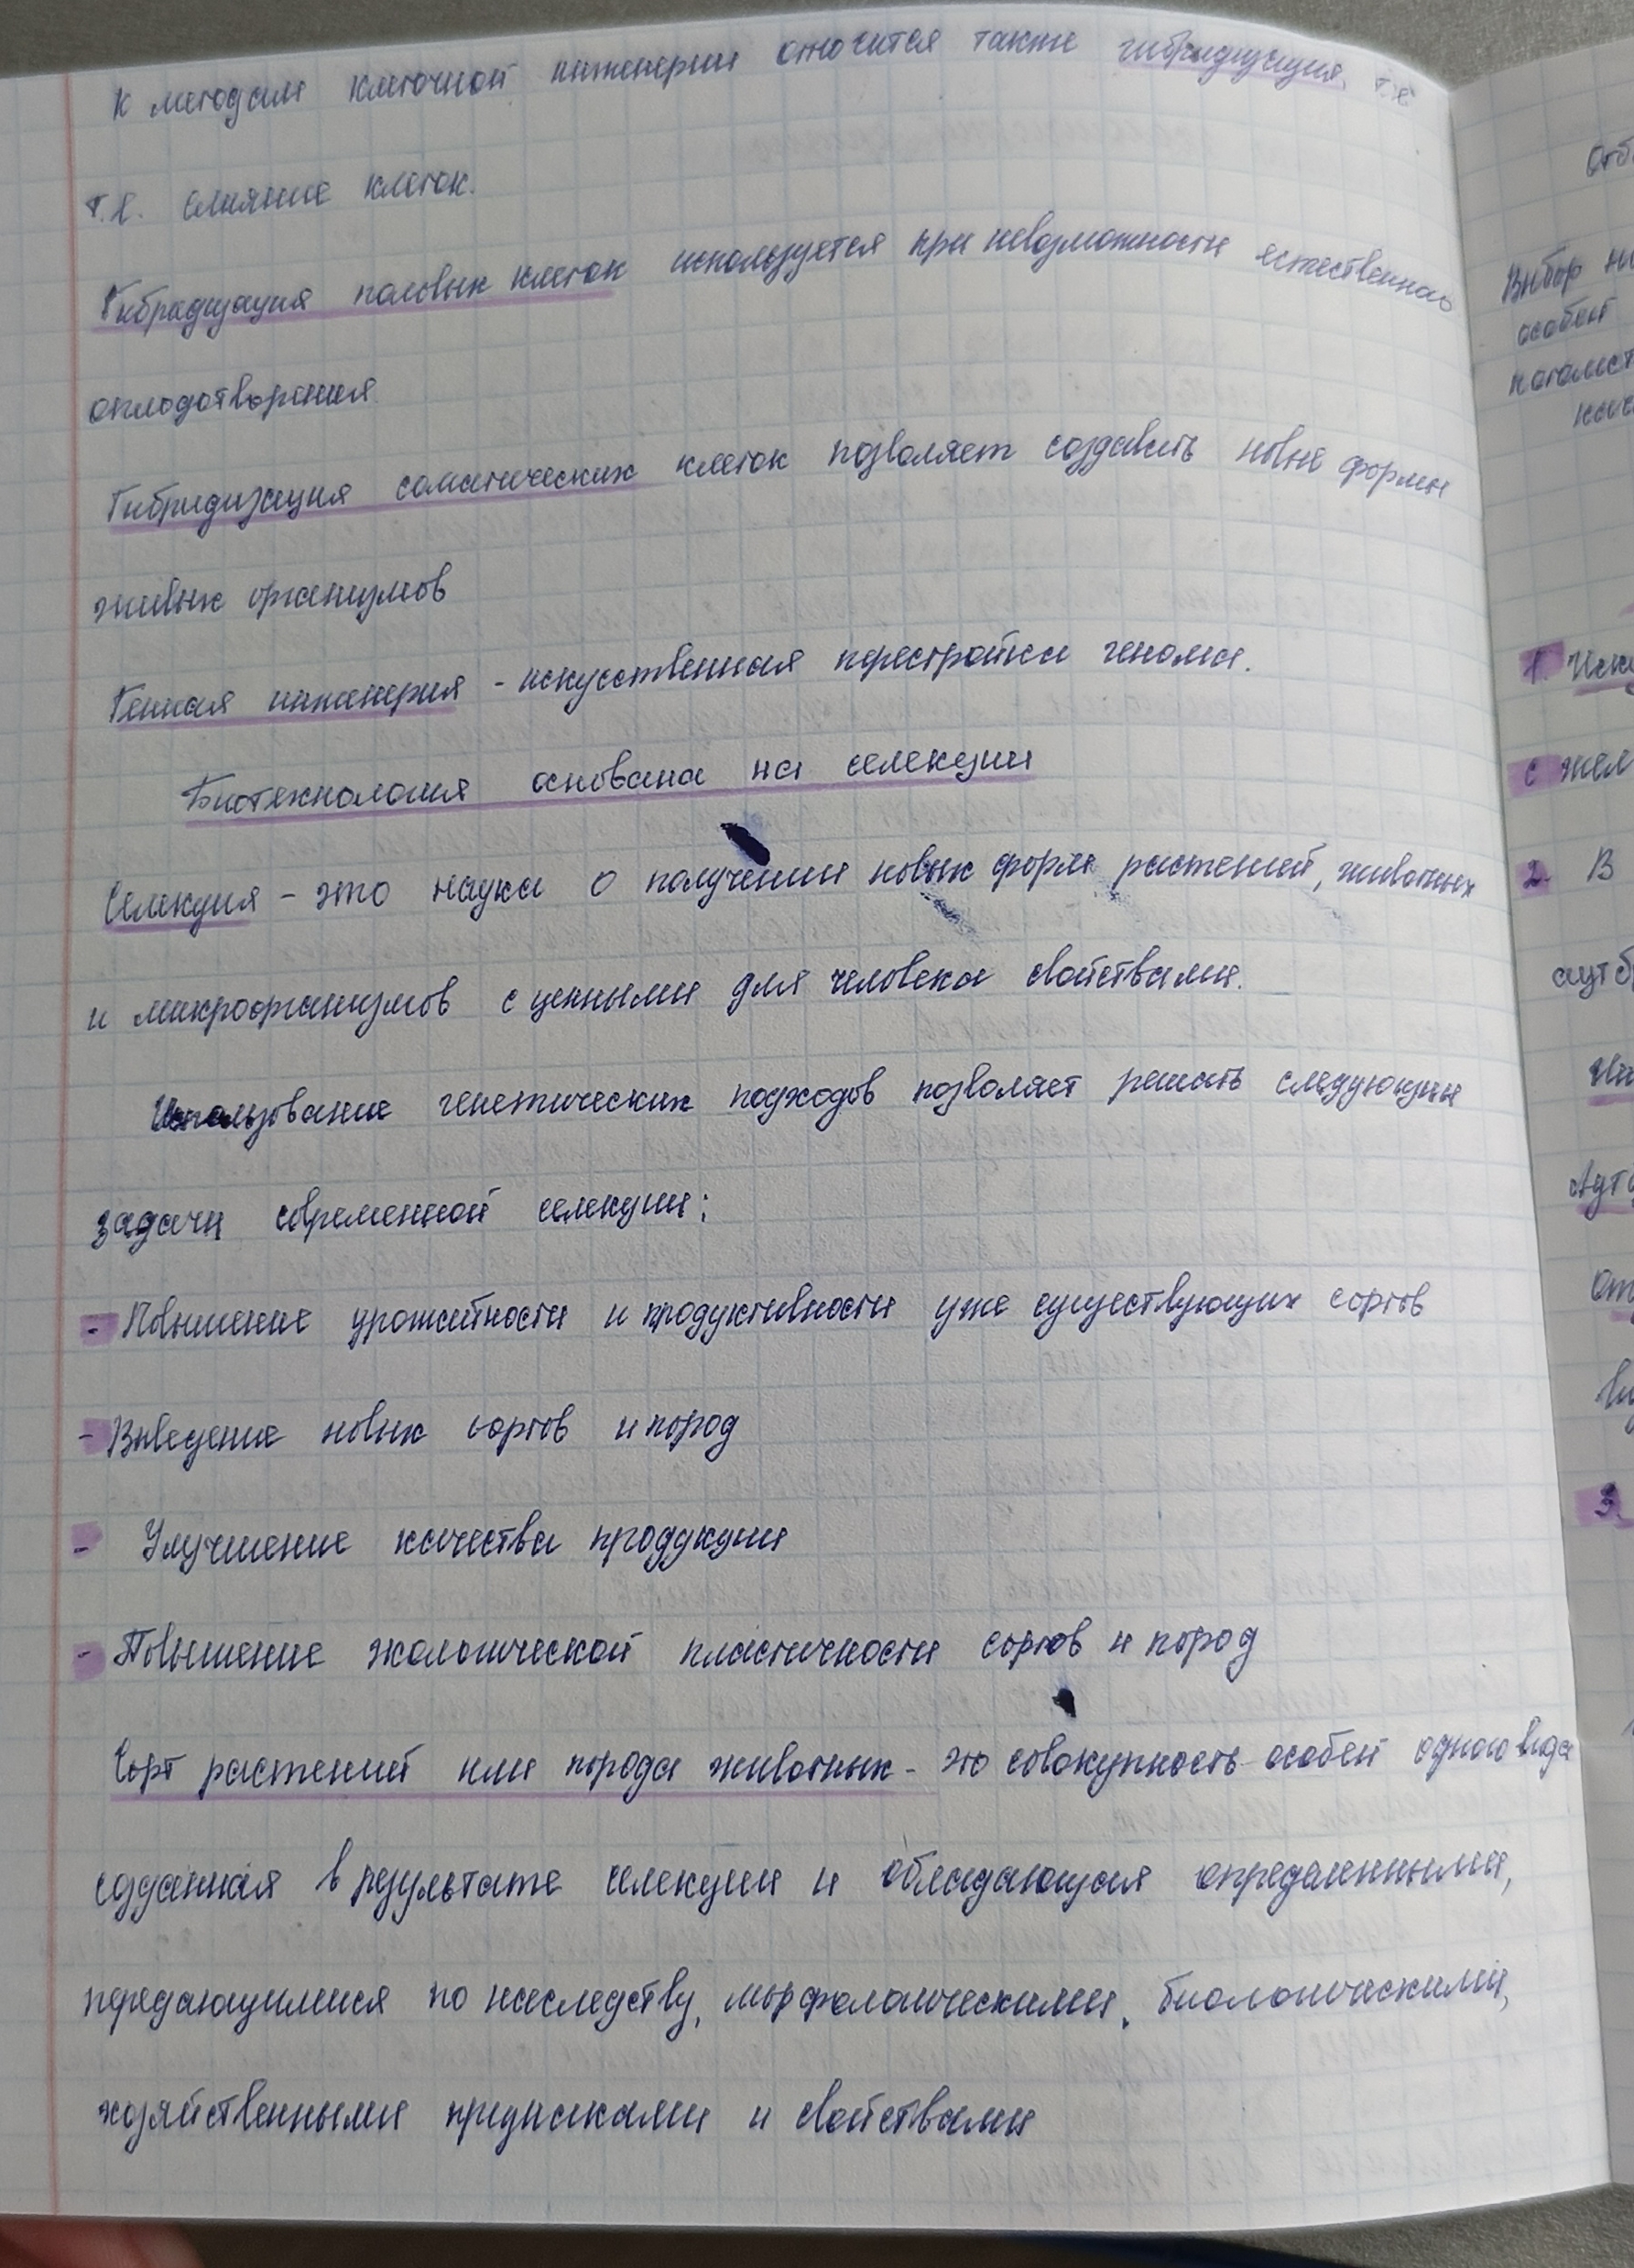 К методам клеточной инженерии относится также гибридизация, т.е
т.е. слияние клеток.
Гибридизация половых клеток используется при невозможности естественного
оплодотворения
Гибридизация соматических клеток позволяет создавать новые формы
живых организмов
Генная инженерия - искусственная перестройка генома.
Биотехнология основана на селекции
Селекция - это наука о получении новых форм растений, животных
и микроорганизмов с ценными для человека свойствами.
Использование генетических подходов позволяет решать следующие
задачи современной селекции:
- Повышение урожайности и продуктивности уже существующих сортов
- Выведение новых сортов и пород
- Улучшение качества продукции
- Повышение экологической пластичности сортов и пород
Сорт растений или порода животных - это совокупность особей одного вида
созданная в результате селекции и обладающая определенными,
передающимися по наследству, морфологическими, биологическими,
хозяйственными признаками и свойствами
Выбор
особей
1.
с жел
2. В
3.